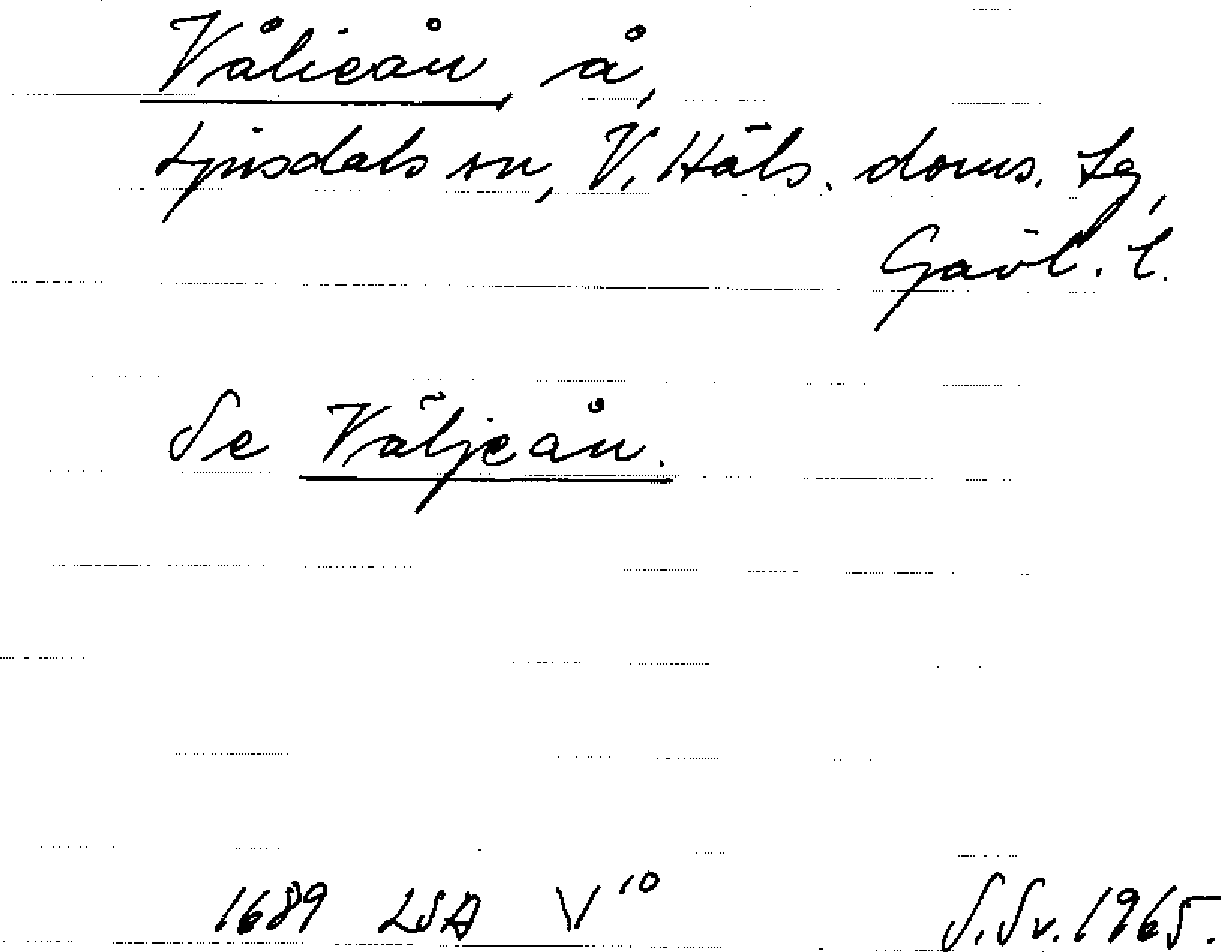 Vålieån, å,
Ljusdals sn, V. Häls. doms. Lg,
Gävl. l.
Se Väljeån.
1689 LSA V¹⁰ S.Sv. 1965.